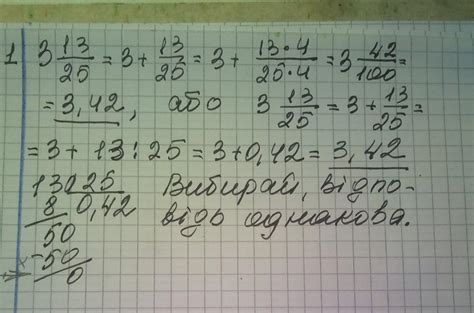 1 3 13/25 = 3 + 13/25 = 3 + 13•4/25•4 = 3 42/100 =
= 3,42, або 3 13/25 = 3 + 13/25 =
= 3 + 13 : 25 = 3 + 0,42 = 3,42
130 25 Вибирай, відпо-
8 0,42 відь однакова.
50
-50
0